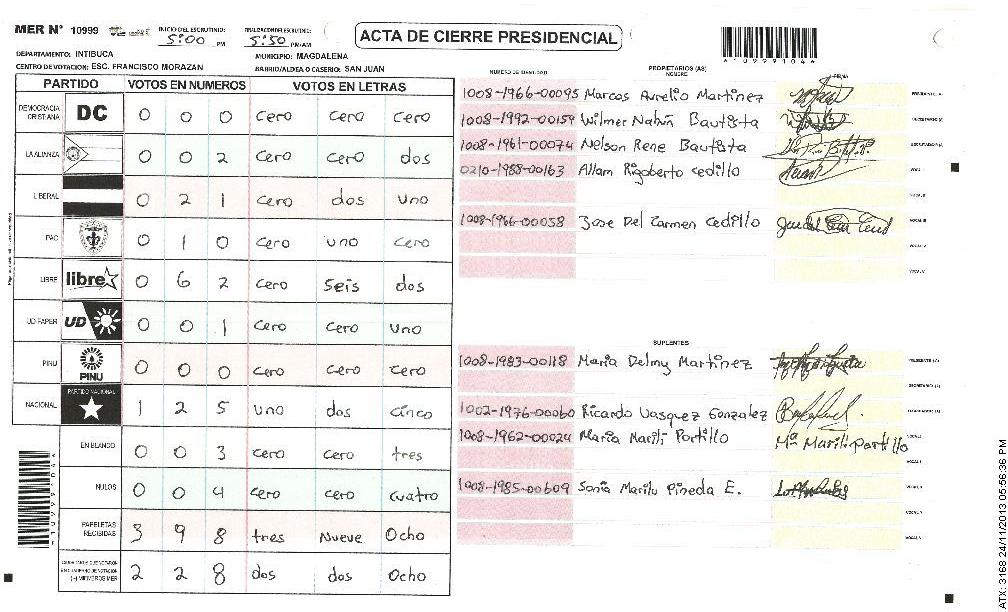 MER N° 10999
INICIO DEL ESCRUTINIO: 5:00 PM
FINALIZACION DEL ESCRUTINIO: 5:50 PM/AM
ACTA DE CIERRE PRESIDENCIAL
*10999104*
DEPARTAMENTO: INTIBUCA
MUNICIPIO: MAGDALENA
CENTRO DE VOTACION: ESC. FRANCISCO MORAZAN
BARRIO/ALDEA O CASERIO: SAN JUAN
PARTIDO VOTOS EN NUMEROS VOTOS EN LETRAS
DEMOCRACIA CRISTIANA DC 0 0 0 Cero Cero Cero
LA ALIANZA 0 0 2 Cero Cero dos
LIBERAL 0 2 1 Cero dos uno
PAC 0 1 0 Cero uno Cero
LIBRE libre 0 6 2 Cero Seis dos
UD-FAPER UD 0 0 1 Cero Cero Uno
PINU PINU 0 0 0 Cero Cero Cero
NACIONAL PARTIDO NACIONAL 1 2 5 uno dos Cinco
EN BLANCO 0 0 3 Cero Cero tres
NULOS 0 0 4 Cero Cero Cuatro
PAPELETAS RECIBIDAS 3 9 8 tres Nueve Ocho
2 2 8 dos dos Ocho
NUMERO DE IDENTIDAD PROPIETARIOS (AS) NOMBRE FIRMA
1008-1966-00095 Marcos Aurelio Martinez PRESIDENTE (A)
1008-1992-00159 Wilmer Nahún Bautista SECRETARIO (A)
1008-1961-00074 Nelson Rene Bautista ESCRUTADOR (A)
0210-1988-00163 Allam Rigoberto Cedillo VOCAL I
VOCAL II
1008-1966-00058 Jose Del Carmen Cedillo VOCAL III
VOCAL IV
VOCAL V
SUPLENTES
1008-1983-00118 Maria Delmy Martinez PRESIDENTE (A)
SECRETARIO (A)
1002-1976-00060 Ricardo Vasquez Gonzalez ESCRUTADOR (A)
1008-1962-00024 Maria Marili Portillo Mª Marili Portillo VOCAL I
VOCAL II
1008-1985-00609 Sonia Marilu Pineda E. VOCAL III
VOCAL IV
VOCAL V
*10999104*
ATX: 3168 24/11/2013 05:56:36 PM